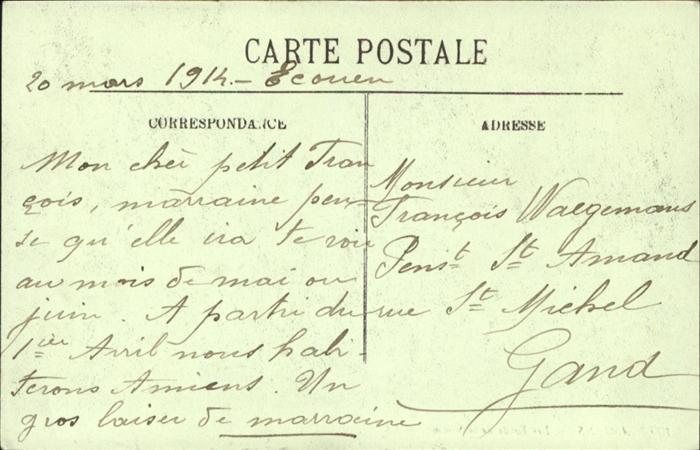 CARTE POSTALE
20 mars 1914.- Ecouen
CORRESPONDANCE
Mon cher petit Fran
çois, marraine pen-
se qu'elle ira te voir
au mois de mai ou
juin. A partir du
1ier Avril nous habi-
terons Amiens. Un
gros baiser de marraine
ADRESSE
Monsieur
François Waegemans
Penst. St. Amand
rue St. Michel
Gand